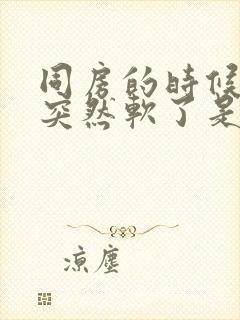 同房的時候
突然軟了是
涼塵